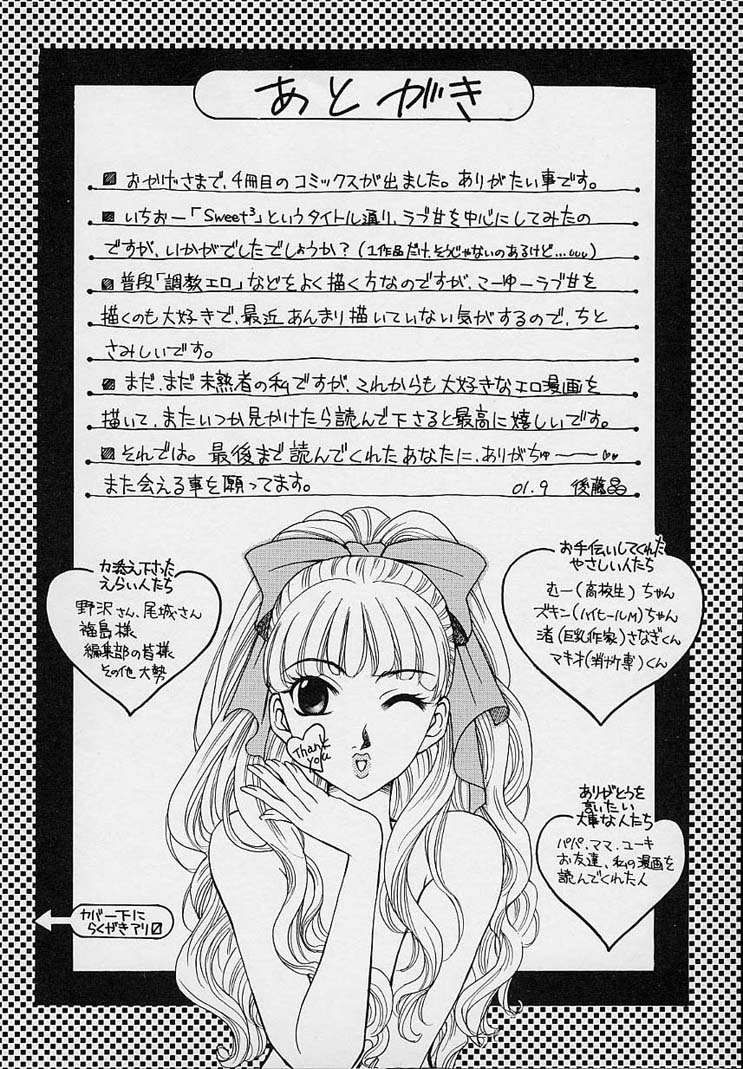 あとがき
おかげさまで、4冊目のコミックスが出ました。ありがたい事です。
いちおー「Sweet³」というタイトル通り、ラブ甘を中心にしてみたの
ですが、いかがでしたでしょうか?(1作品だけ、そうじゃないのあるけど…
普段「調教エロ」などをよく描く方なのですが、こーゆーラブ甘を
描くのも大好きで、最近あんまり描いていない気がするので、ちと
さみしいです。
まだ、まだ未熟者の私ですが、これからも大好きなエロ漫画を
描いて、またいつか見かけたら読んで下さると最高に嬉しいです。
それでは。最後まで読んでくれたあなたに、ありがちゅ〜♡♡
また会える事を願ってます。 01.9 後藤晶
力添え下さった
えらい人たち
野沢さん、尾城さん
福島様
編集部の皆様
その他大勢
お手伝いしてくれた
やさしい人たち
むー(高校生)ちゃん
ズキン(ハイヒールM)ちゃん
渚(巨乳作家)さなぎくん
マキオ くん
Thank
you
ありがとうを
言いたい
大事な人たち
パパ、ママ、ユーキ
お友達、私の漫画を
読んでくれた人
カバー下に
らくがきアリ